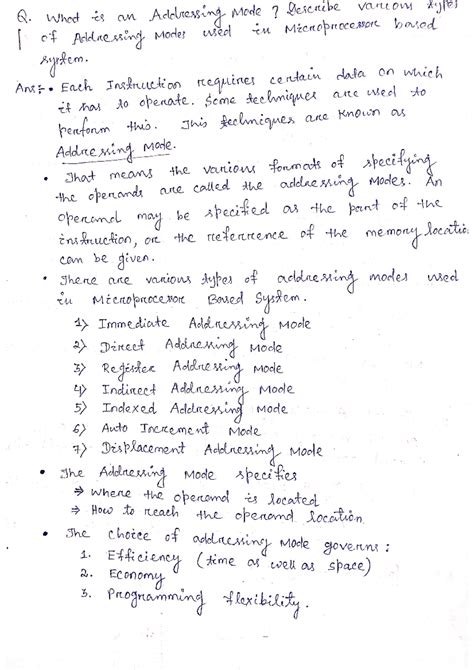 Q. What is an Addressing Mode ? Describe various types
of Addressing Modes used in Microprocessor based
system.
Ans:- • Each Instruction requires certain data on which
it has to operate. Some techniques are used to
perform this. This techniques are known as
Addressing Mode.
• That means the various formats of specifying
the operands are called the addressing Modes. An
operand may be specified as the part of the
instruction, or the reference of the memory location
can be given.
• There are various types of addressing modes used
in Microprocessor Based System.
1) Immediate Addressing Mode
2) Direct Addressing Mode
3) Register Addressing Mode
4) Indirect Addressing Mode
5) Indexed Addressing Mode
6) Auto Increment Mode
7) Displacement Addressing Mode
• The Addressing Mode specifies
⇒ Where the operand is located
⇒ How to reach the operand location
• The choice of addressing Mode governs :
1. Efficiency (time as well as space)
2. Economy
3. Programming flexibility.